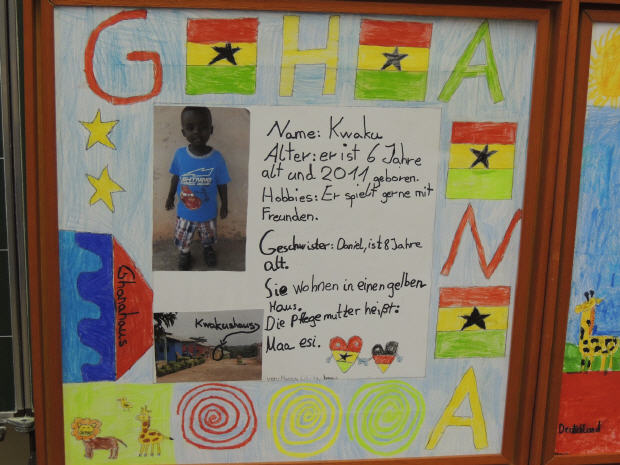 GHANA
Name: Kwaku
Alter: er ist 6 Jahre
alt und 2011 geboren.
Hobbies: Er spielt gerne mit
Freunden.
Geschwister: Daniel, ist 8 Jahre
alt.
Sie wohnen in einen gelben
Haus.
Die Pflegemutter heißt:
Maa esi.
Kwakushaus
Ghanahaus
Deutschland